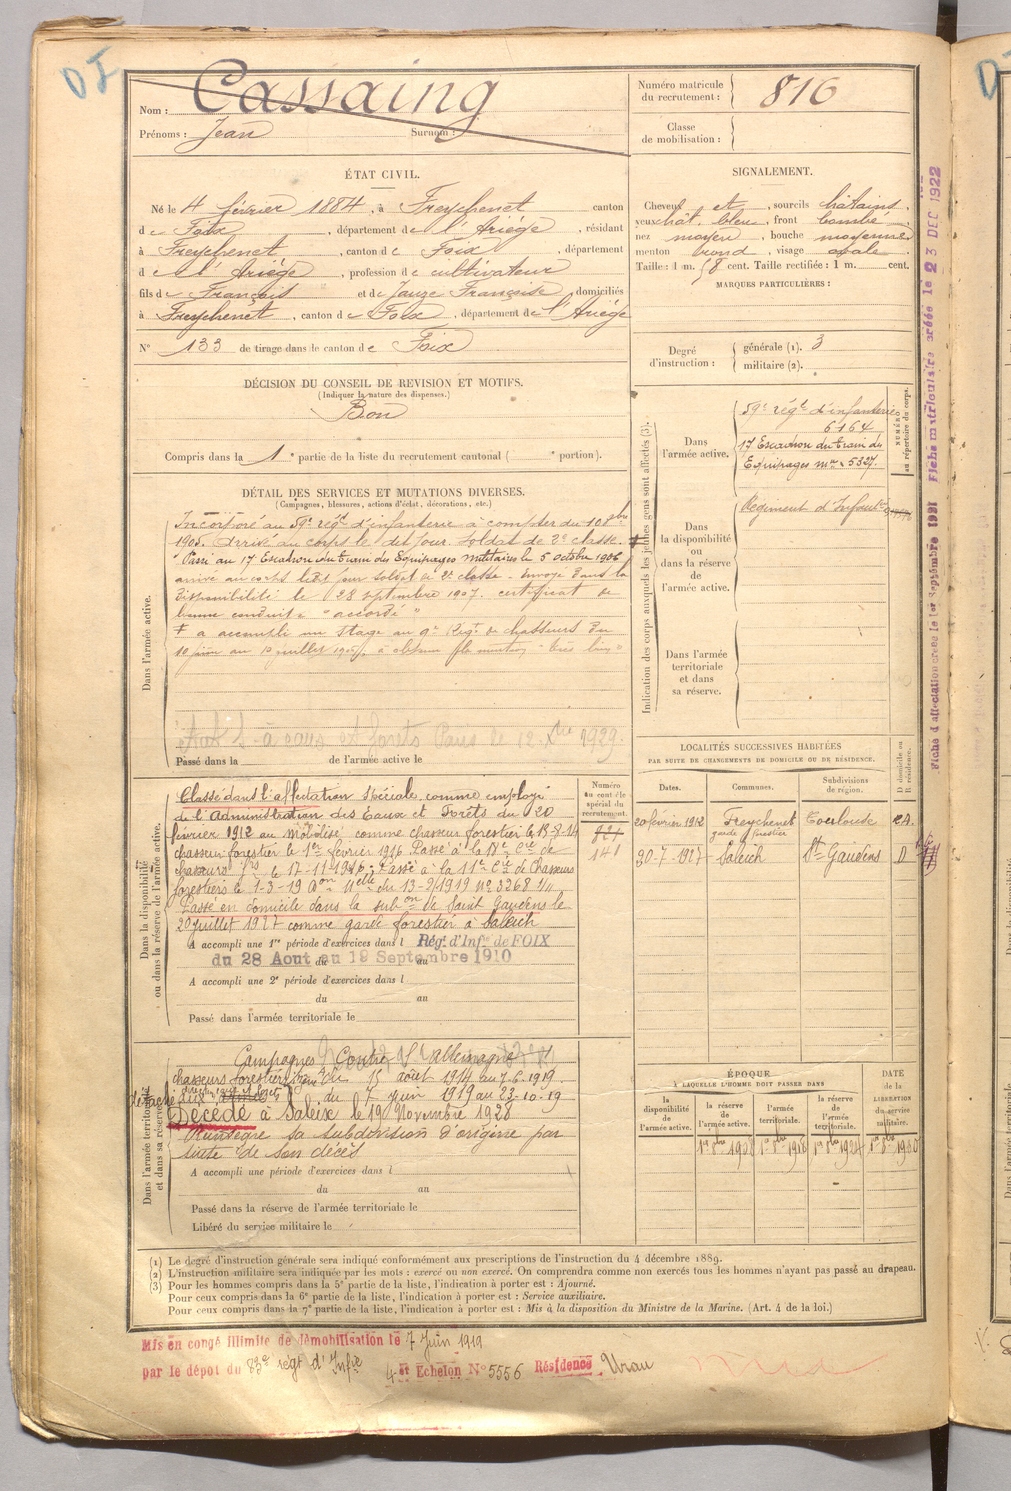 DI
Nom : Cassaing
Prénoms : Jean Surnom :
Numéro matricule du recrutement : 816
Classe de mobilisation :
ÉTAT CIVIL.
Né le 4 février 1884, à Freychenet canton
de Foix, département de l'Ariège, résidant
à Freychenet, canton de Foix, département
de l'Ariège, profession de cultivateur
fils de François et de Jauze Françoise, domiciliés
à Freychenet, canton de Foix, département de l'Ariège
N° 133 de tirage dans le canton de Foix
SIGNALEMENT.
Cheveux et sourcils châtains,
yeux chât. bleu, front bombé,
nez moyen, bouche moyenne,
menton rond, visage ovale.
Taille : 1 m. 58 cent. Taille rectifiée : 1 m. cent.
MARQUES PARTICULIÈRES :
Degré d'instruction : générale (1). 3
militaire (2).
DÉCISION DU CONSEIL DE REVISION ET MOTIFS.
(Indiquer la nature des dispenses.)
Bon
Compris dans la 1e partie de la liste du recrutement cantonal ( e portion).
DÉTAIL DES SERVICES ET MUTATIONS DIVERSES.
(Campagnes, blessures, actions d'éclat, décorations, etc.)
Dans l'armée active.
Incorporé au 59e régt d'infanterie à compter du 10 8bre
1905. Arrivé au corps le dit jour. Soldat de 2e classe.
Passé au 17 Escadron du train des Equipages militaires le 5 octobre 1906
arrivé au corps ledit jour soldat de 2e classe. Envoyé dans la
disponibilité le 28 septembre 1907. certificat de
bonne conduite "accordé"
‡ a accompli un stage au 9e Régt de chasseurs du
a obtenu la mention "très bien"
Aux S- à eaux et forêts Paris le 12 Xbre 1929
Passé dans la de l'armée active le
Dans la disponibilité ou dans la réserve de l'armée active.
Classé dans l'affectation spéciale comme employé
de l'administration des Eaux et Forêts du 20
février 1912 au Mobilisé comme chasseur forestier le 15-8-14
chasseur forestier le 1er février 1916 Passé à la 17e Cie de
chasseurs frs le 17-11-1916. Passé à la 11e Cie de Chasseurs
forestiers le 1-3-19 Don Melle du 13-2/1919 No 3268 1/11
Passé en domicile dans la subon de Saint Gaudens le
20 juillet 1927 comme garde forestier à Saleich
A accompli une 1re période d'exercices dans l Rég. d'Infie de FOIX
du 28 Aout au 19 Septembre 1910
A accompli une 2e période d'exercices dans l
du au
Passé dans l'armée territoriale le
Numéro au contrôle spécial du recrutement.
141
Dans l'armée territoriale et dans sa réserve.
Campagnes Contre l'allemagne
chasseurs forestiers du 15 août 1914 au 7.6.1919.
détaché du 7 juin 1919 au 23-10-19
Décédé à Saleix le 19 Novembre 1928
Réintègre sa subdivision d'origine par
suite de son décès
A accompli une période d'exercices dans l
du au
Passé dans la réserve de l'armée territoriale le
Libéré du service militaire le
Indication des corps auxquels les jeunes gens sont affectés (3).
NUMÉRO au répertoire du corps.
Dans l'armée active.
59e régt d'infanterie
6164
17 Escadron du train des
Equipages mle 5327.
Dans la disponibilité ou dans la réserve de l'armée active.
Régiment d'Infanterie
Dans l'armée territoriale et dans sa réserve.
LOCALITÉS SUCCESSIVES HABITÉES
PAR SUITE DE CHANGEMENTS DE DOMICILE OU DE RÉSIDENCE.
D domicile ou R résidence.
Dates. Communes. Subdivisions de région.
20 février 1912 Freychenet Toulouse
garde forestier
30-7-1927 Saleich St Gaudens D
ÉPOQUE
À LAQUELLE L'HOMME DOIT PASSER DANS
la disponibilité de l'armée active.
la réserve de l'armée active.
l'armée territoriale.
la réserve de l'armée territoriale.
DATE de la LIBÉRATION du service militaire.
Fiche d'affectation créée le 1er Septembre 1921 Fiche matriculaire créée le 23 DEC 1922
(1) Le degré d'instruction générale sera indiqué conformément aux prescriptions de l'instruction du 4 décembre 1889.
(2) L'instruction militaire sera indiquée par les mots : exercé ou non exercé. On comprendra comme non exercés tous les hommes n'ayant pas passé au drapeau.
(3) Pour les hommes compris dans la 5e partie de la liste, l'indication à porter est : Ajourné.
Pour ceux compris dans la 6e partie de la liste, l'indication à porter est : Service auxiliaire.
Pour ceux compris dans la 7e partie de la liste, l'indication à porter est : Mis à la disposition du Ministre de la Marine. (Art. 4 de la loi.)
Mis en congé illimité de démobilisation le 7 Juin 1919
par le dépôt du 83e régt d'Infie 4 et Echelon No 5556 Résidence Urau